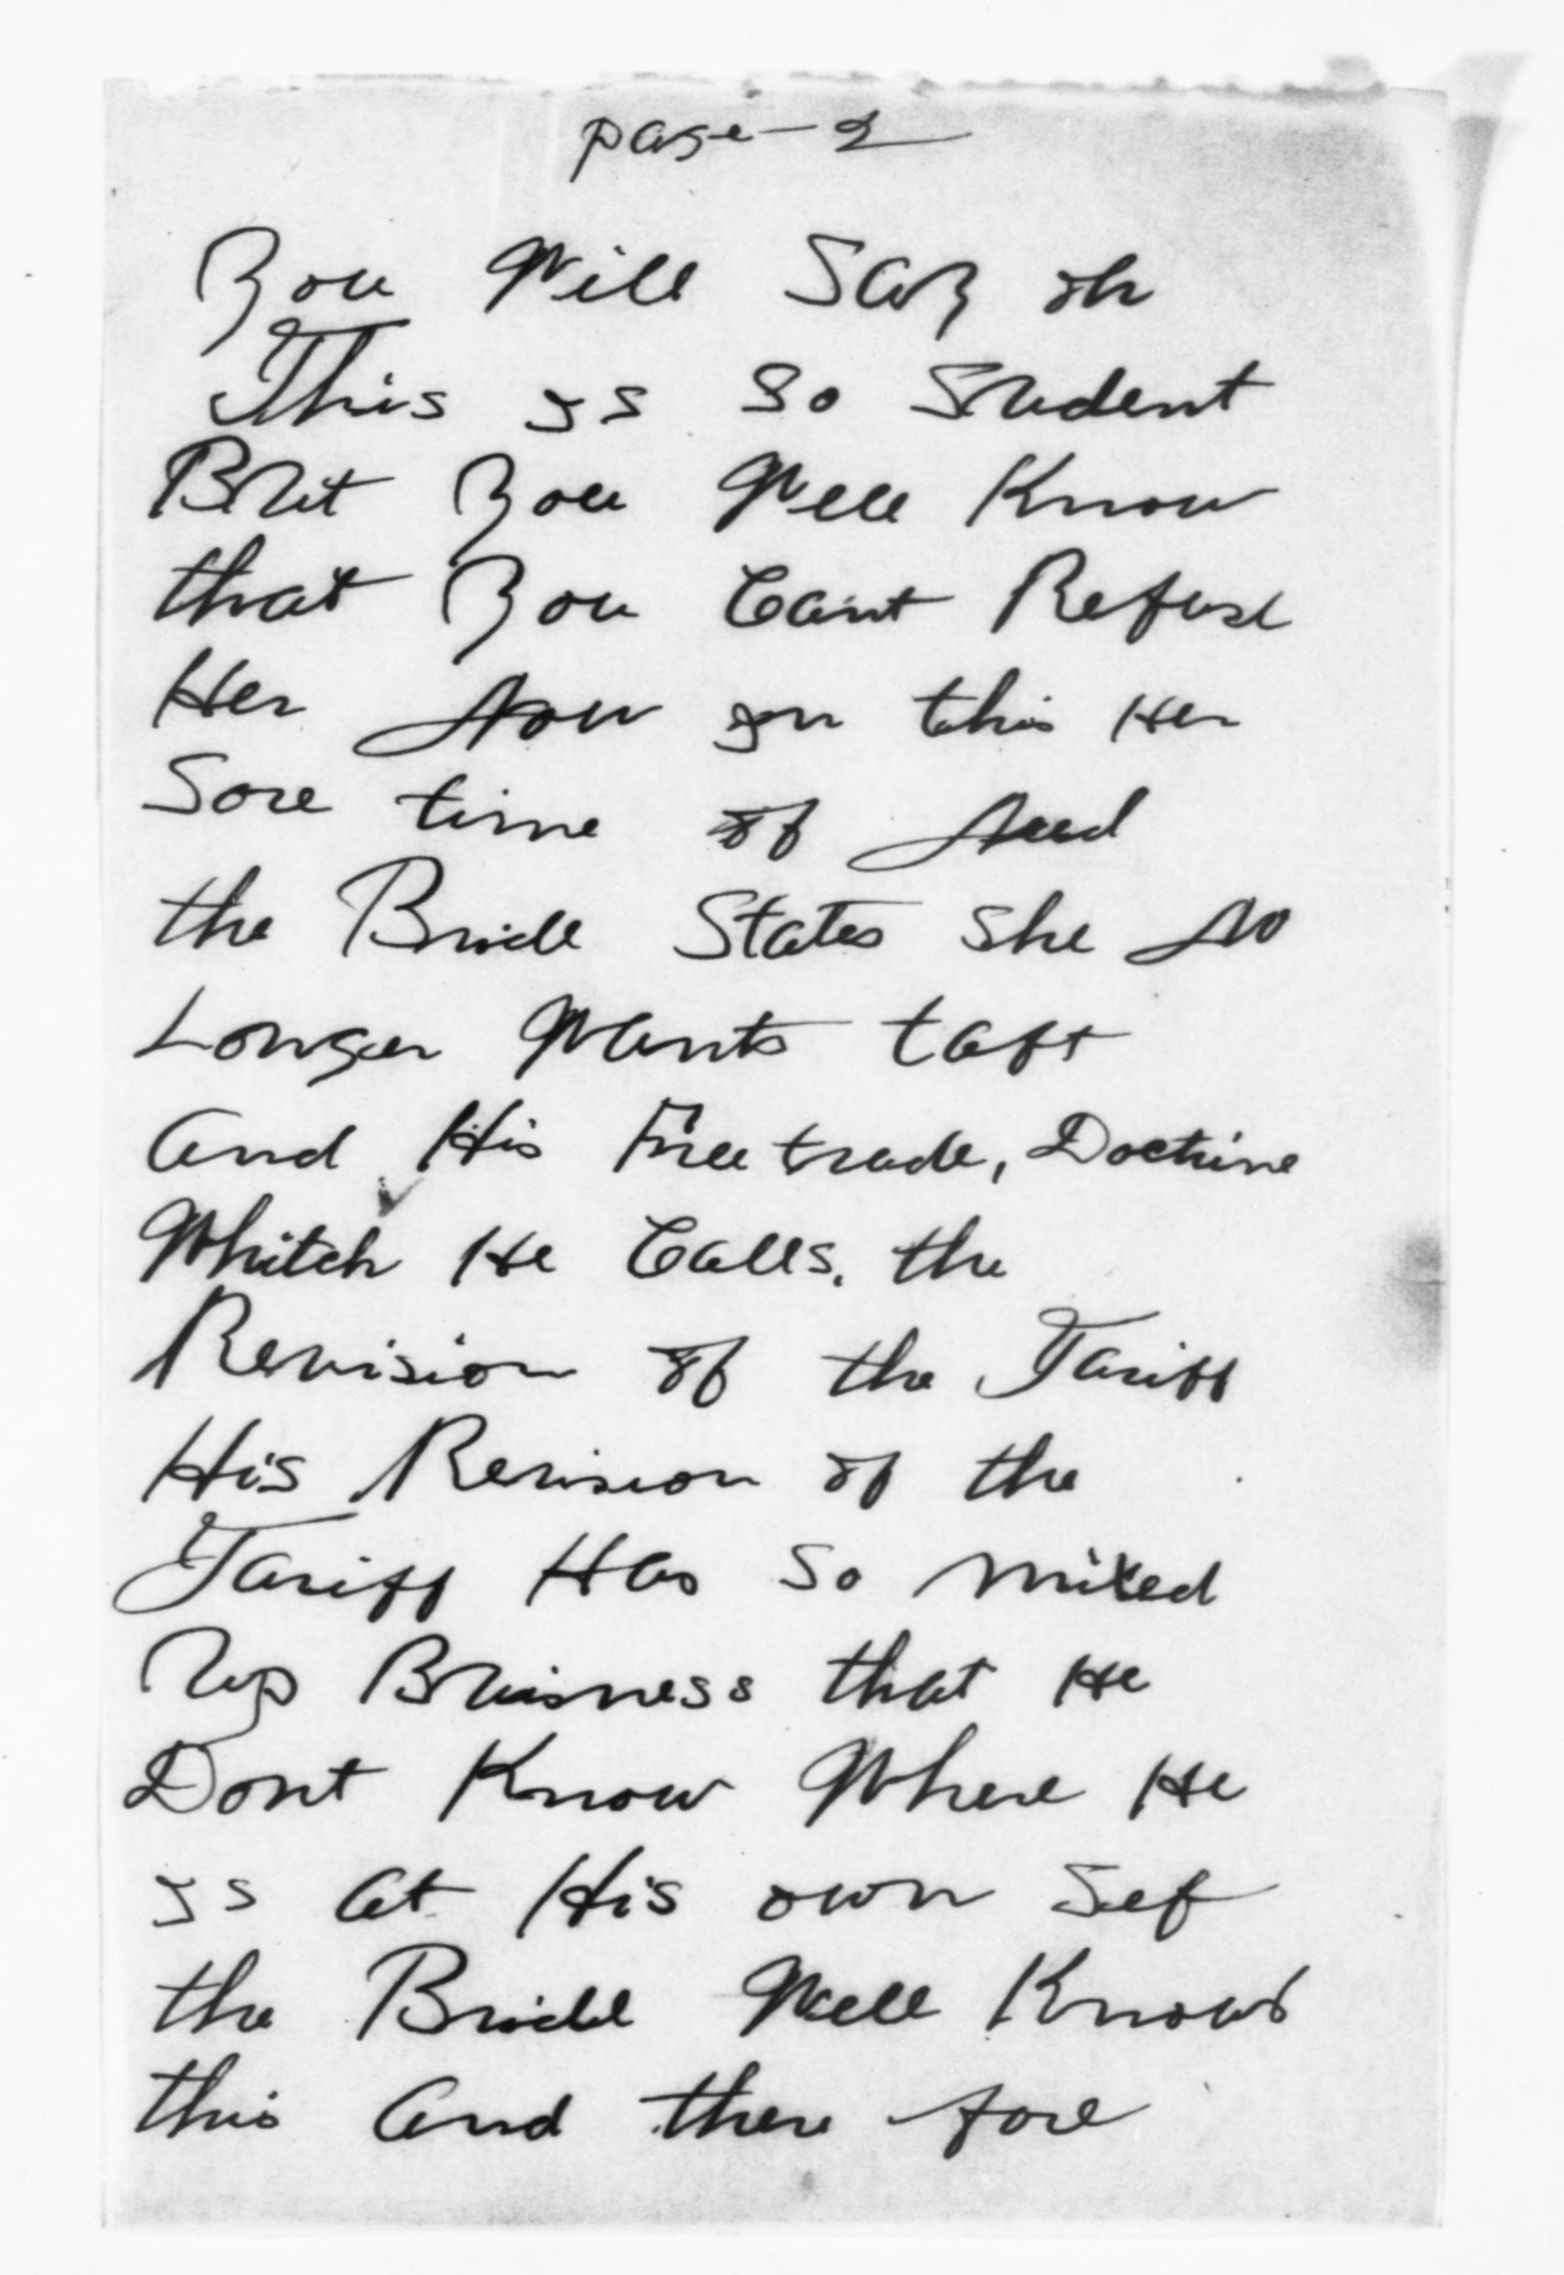 page-2
You Will Say oh
This is So Sudent
But You Well Know
that You Cant Refuse
Her Now in this Her
Sore time of Need
the Bride States She No
Longer Wants taft
And His Free trade, Doctrine
Whitch He Calls, the
Revision of the Tariff
His Revision of the
Tariff Has So mixed
Up Buisness that He
Dont Know Where He
is at His own Sef
the Bride Well Knows
this And there fore